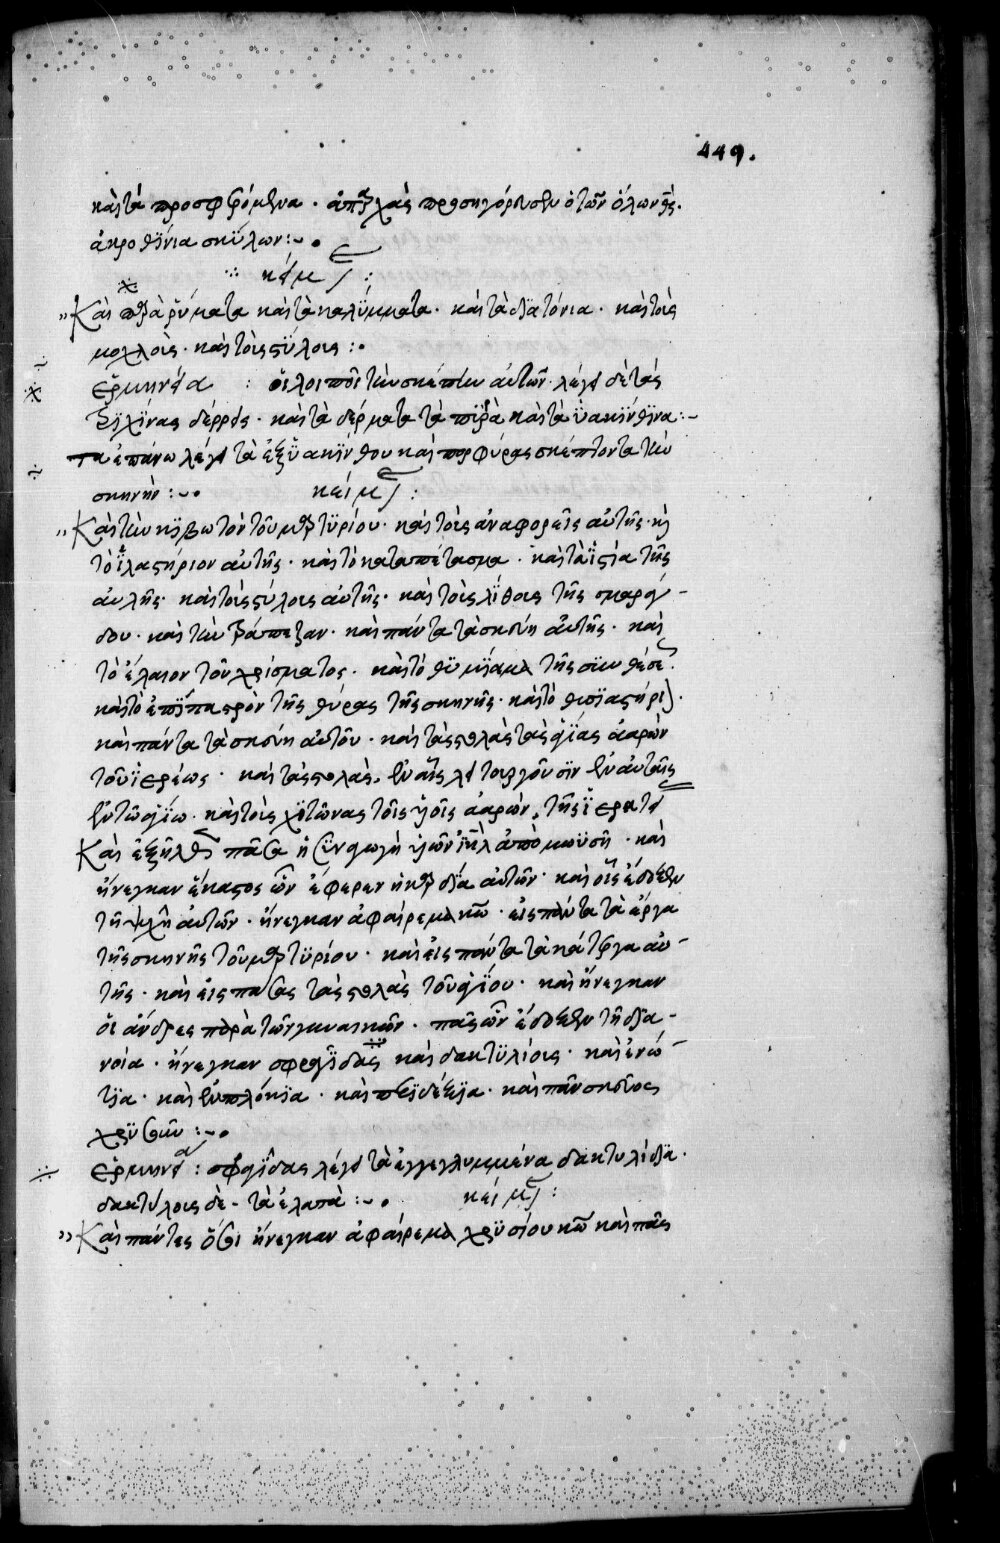 449.
καὶ τὰ προσφερόμενα · ἀπαρχὰς προσηγόρευσεν ὁ τῶν ὅλων θς.
ἀκροθΐνια σκύλων :~
κείμ :
" Καὶ παραρύματα καὶ τὰ καλύμματα · καὶ τὰ διατόνια · καὶ τοὺς
μοχλοὺς · καὶ τοὺς στύλους :
ἑρμηνεία : οἱ λοιποὶ τὴν σκέπην αὐτῶν · λέγει δὲ τὰς
τριχΐνας δέρρεις · καὶ τὰ δέρματα τὰ πυρρὰ καὶ τὰ ὑακΐνθϊνα :-
ἐπάνω λέγει τὰ ἐξ ὑακΐνθου καὶ πορφύρας σκέποντα τὴν
σκηνήν :~ κείμ :
" Καὶ τὴν κϊβωτὸν τοῦ μαρτϋρίου · καὶ τοὺς ἀναφορεῖς αὐτῆς · κὶ
τὸ ἱλαστήριον αὐτῆς · καὶ τὸ καταπέτασμα · καὶ τὰ ἱστία τῆς
αὐλῆς · καὶ τοὺς στύλους αὐτῆς · καὶ τοὺς λίθους τῆς σμαρά-
δου · καὶ τὴν τράπεζαν · καὶ πάντα τὰ σκεύη αὐτῆς · καὶ
τὸ ἔλαιον τοῦ χρίσματος · καὶ τὸ θϋμΐαμα τῆς συνθέσε.
καὶ τὸ ἐπίσπαστρον τῆς θύρας τῆς σκηνῆς · καὶ τὸ θυσϊαστήρι.
καὶ πάντα τὰ σκεύη αὐτοῦ · καὶ τὰς στολὰς τὰς ἁγίας ἀαρὼν
τοῦ ἱερέως · καὶ τὰς στολὰς, ἐν αἷς λειτουργοῦσϊν ἐν αὐταῖς
ἐν τῶ ἁγίω · καὶ τοὺς χϊτῶνας τοῖς υἱοῖς ἀαρὼν, τῆς ἱερατεί
Καὶ ἐξῆλθε πᾶσα ἡ συναγωγὴ υἱῶν ιηλ ἀπὸ μωϋσῆ · καὶ
ἤνεγκαν ἕκαστος ὧν ἔφερεν ἡ καρδία αὐτῶν · καὶ οἷς ἔδοξεν
τῆ ψυχῆ αὐτῶν · ἤνεγκαν ἀφαίρεμα κω · εἰς πάντα τὰ ἔργα
τῆς σκηνῆς τοῦ μαρτϋρίου · καὶ εἰς πάντα τὰ κάτεργα αὐ-
τῆς · καὶ εἰς πάσας τὰς στολὰς τοῦ ἁγίου · καὶ ἤνεγκαν
οἱ ἄνδρες παρὰ τῶν γυναικῶν · πᾶς ὧν ἔδοξεν τῆ δια-
νοία · ἤνεγκαν σφραγῖδας καὶ δακτϋλίους · καὶ ἐνώ-
τϊα · καὶ ἐμπλόκϊα · καὶ περϊδέξϊα · καὶ πᾶν σκεῦος
χρϋσοῦν :~
ἑρμηνεία : σφραγῖδας λέγει τὰ ἐγγεγλυμμένα δακτυλίδια ·
δακτύλους δὲ - τὰ ἐλαπὰ :~ κείμ :
" Καὶ πάντες ὅσοι ἤνεγκαν ἀφαίρεμα χρϋσίου κω καὶ πᾶς